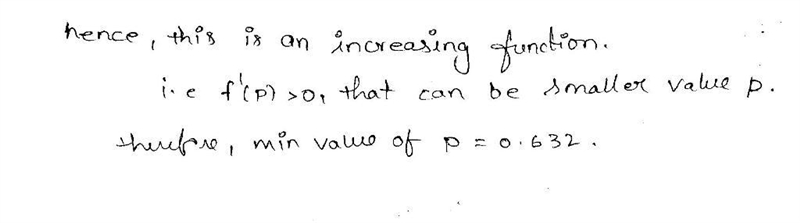 hence, this is an increasing function.
i.e f'(p) >0, that can be smaller value p.
therefore, min value of p = 0.632.